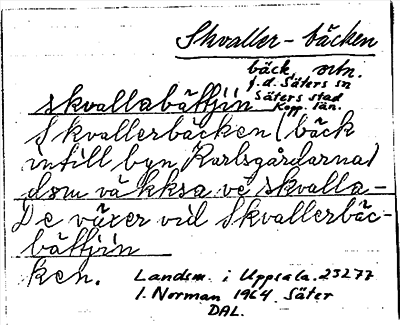 Skvaller-bäcken
bäck, ortn.
f.d. Säters sn
Säters stad
Kopp. län.
skvallabättjin
Skvallerbäcken (bäck
intill byn Karlsgårdarna)
dom väkksa ve skvalla-
De växer vid Skvallerbäc-
bättjin
ken.
Landsm. i Uppsala. 23277
I. Norman 1964. Säter
DAL.